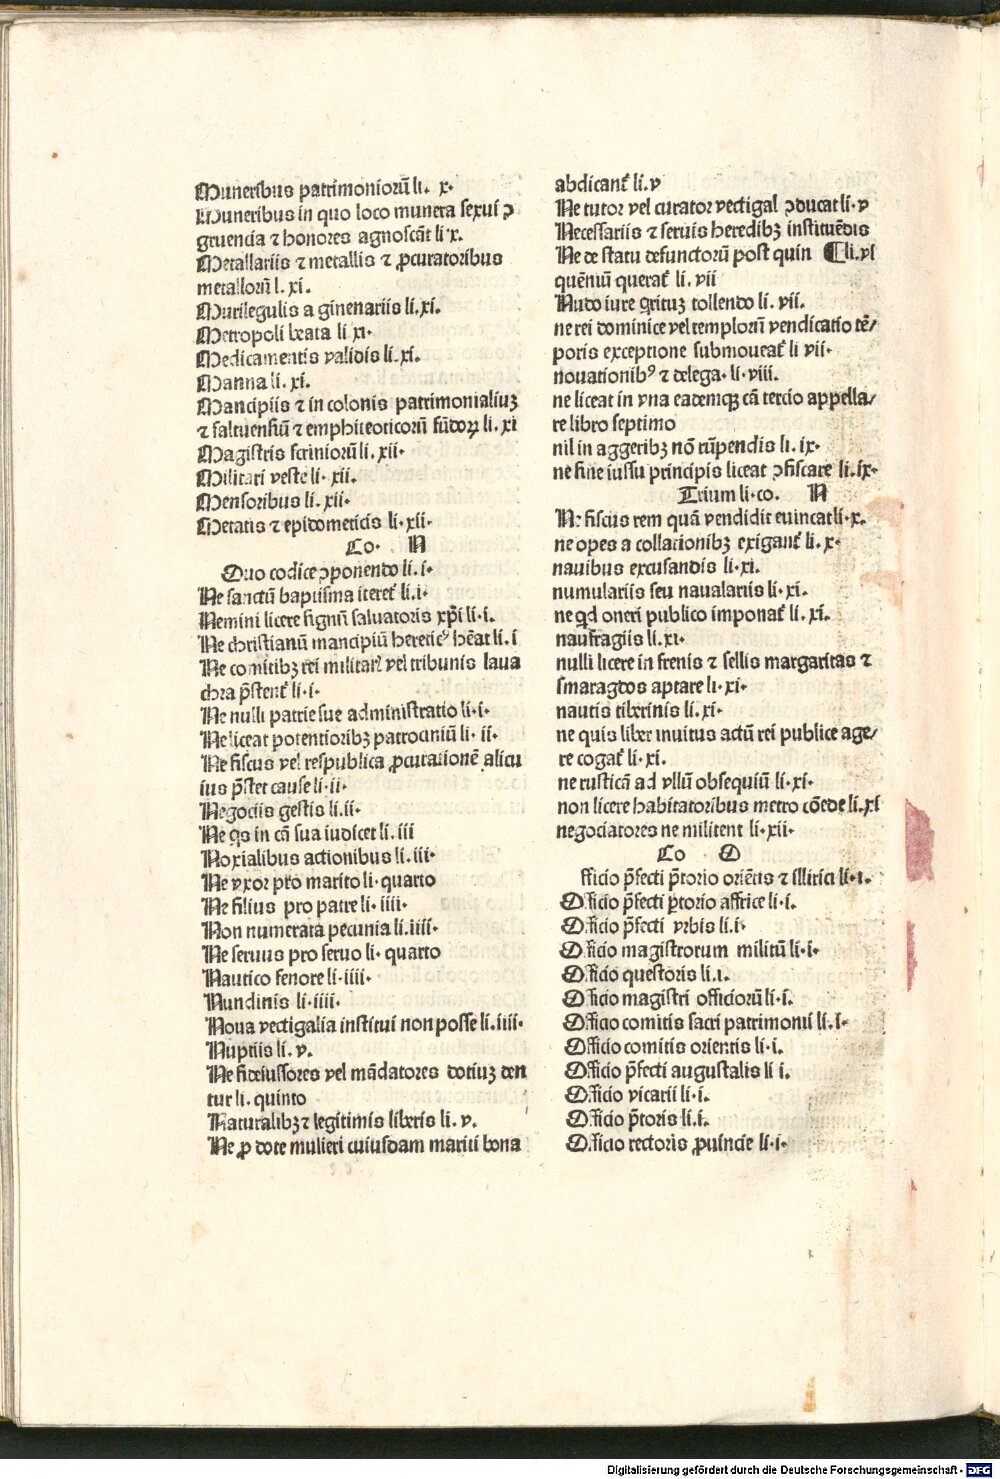 Muneribus patrimonioꝝ̄ li. x.
Muneribus in quo loco munera sexui ꝯ
gruencia ⁊ honores agnoscāt li x.
Metallariis ⁊ metallis ⁊ ꝓcuratoribus
metalloꝝū l. xi.
Murilegulis a ginenariis li. xi.
Metropoli beata li xi.
Medicamentis validis li. xi.
Manna li. xi.
Mancipiis ⁊ in colonis patrimonialiuꝫ
⁊ saltuensiū ⁊ emphiteoticorū fūdoꝝ li. xi
Magistris scriniorū li. xii.
Militari veste li. xii.
Mensoribus li. xii.
Metatis ⁊ epidometicis li. xii.
Co. N
Ouo codice ꝯponendo li. i.
Ne sanctū baptisma iteret̄ li. i.
Nemini licere signū saluatoris xp̄i li. i.
Ne christianū mancipiū heretic⁹ hēat li. i
Ne comitibꝫ rei militari vel tribunis laua
chra p̄stent̄ li. i.
Ne nulli patrie sue administratio li. i.
Ne liceat potentioribꝫ patrociniū li. ii.
Ne fiscus vel respublica ꝓcurationē alicu
ius p̄stet cause li. ii.
Negociis gestis li. ii.
Ne q̄s in cā sua iudicet li. iii
Noxialibus actionibus li. iii.
Ne vxor pro marito li. quarto
Ne filius pro patre li. iiii.
Non numerata pecunia li. iiii.
Ne seruus pro seruo li. quarto
Nautico fenore li. iiii.
Nundinis li. iiii.
Noua vectigalia institui non posse li. iiii.
Nuptiis li. v.
Ne fideiussores vel mādatores dotiuꝫ den
tur li. quinto
Naturalibꝫ ⁊ legitimis liberis li. v.
Ne ꝓ dote mulieri cuiusdam mariti bona
abdicant̄ li. v
Ne tutor vel curator vectigal ꝯducat li. v
Necessariis ⁊ seruis heredibꝫ instituēdis
Ne de statu defunctorū post quin ¶ li. vi
quēniū querat̄ li. vii
Nudo iure qrituꝫ tollendo li. vii.
ne rei dominice vel templorū vendicatio tē/
poris exceptione submoueat̄ li vii.
nouationib⁹ ⁊ delega. li. viii.
ne liceat in vna eademqꝫ cā tercio appella/
re libro septimo
nil in aggeribꝫ nō rūpendis li. ix.
ne sine iussu principis liceat ꝯfiscare li. ix.
Trium li. co. N
Ne fiscus rem quā vendidit euincat li. x.
ne opes a collationibꝫ exigant̄ li. x.
nauibus excusandis li. xi.
numulariis seu naualariis li. xi.
ne qd oneri publico imponat̄ li. xi.
naufragiis li. xi.
nulli licere in frenis ⁊ sellis margaritas ⁊
smaragdos aptare li. xi.
nautis tiberinis li. xi.
ne quis liber inuitus actū rei publice age/
re cogat̄ li. xi.
ne rusticā ad vllū obsequiū li. xi.
non licere habitatoribus metro cōede li. xi
negociatores ne militent li. xii.
Co O
fficio p̄fecti p̄torio oriētis ⁊ illirici li. i.
Officio p̄fecti p̄torio affrice li. i.
Officio p̄fecti vrbis li. i.
Officio magistrorum militū li. i.
Officio questoris li. i.
Officio magistri officiorū li. i.
Officio comitis sacri patrimonii li. i.
Officio comitis orientis li. i.
Officio p̄fecti augustalis li i.
Officio vicarii li. i.
Officio p̄toris li. i.
Officio rectoris ꝓuincie li. i.
Digitalisierung gefördert durch die Deutsche Forschungsgemeinschaft - DFG